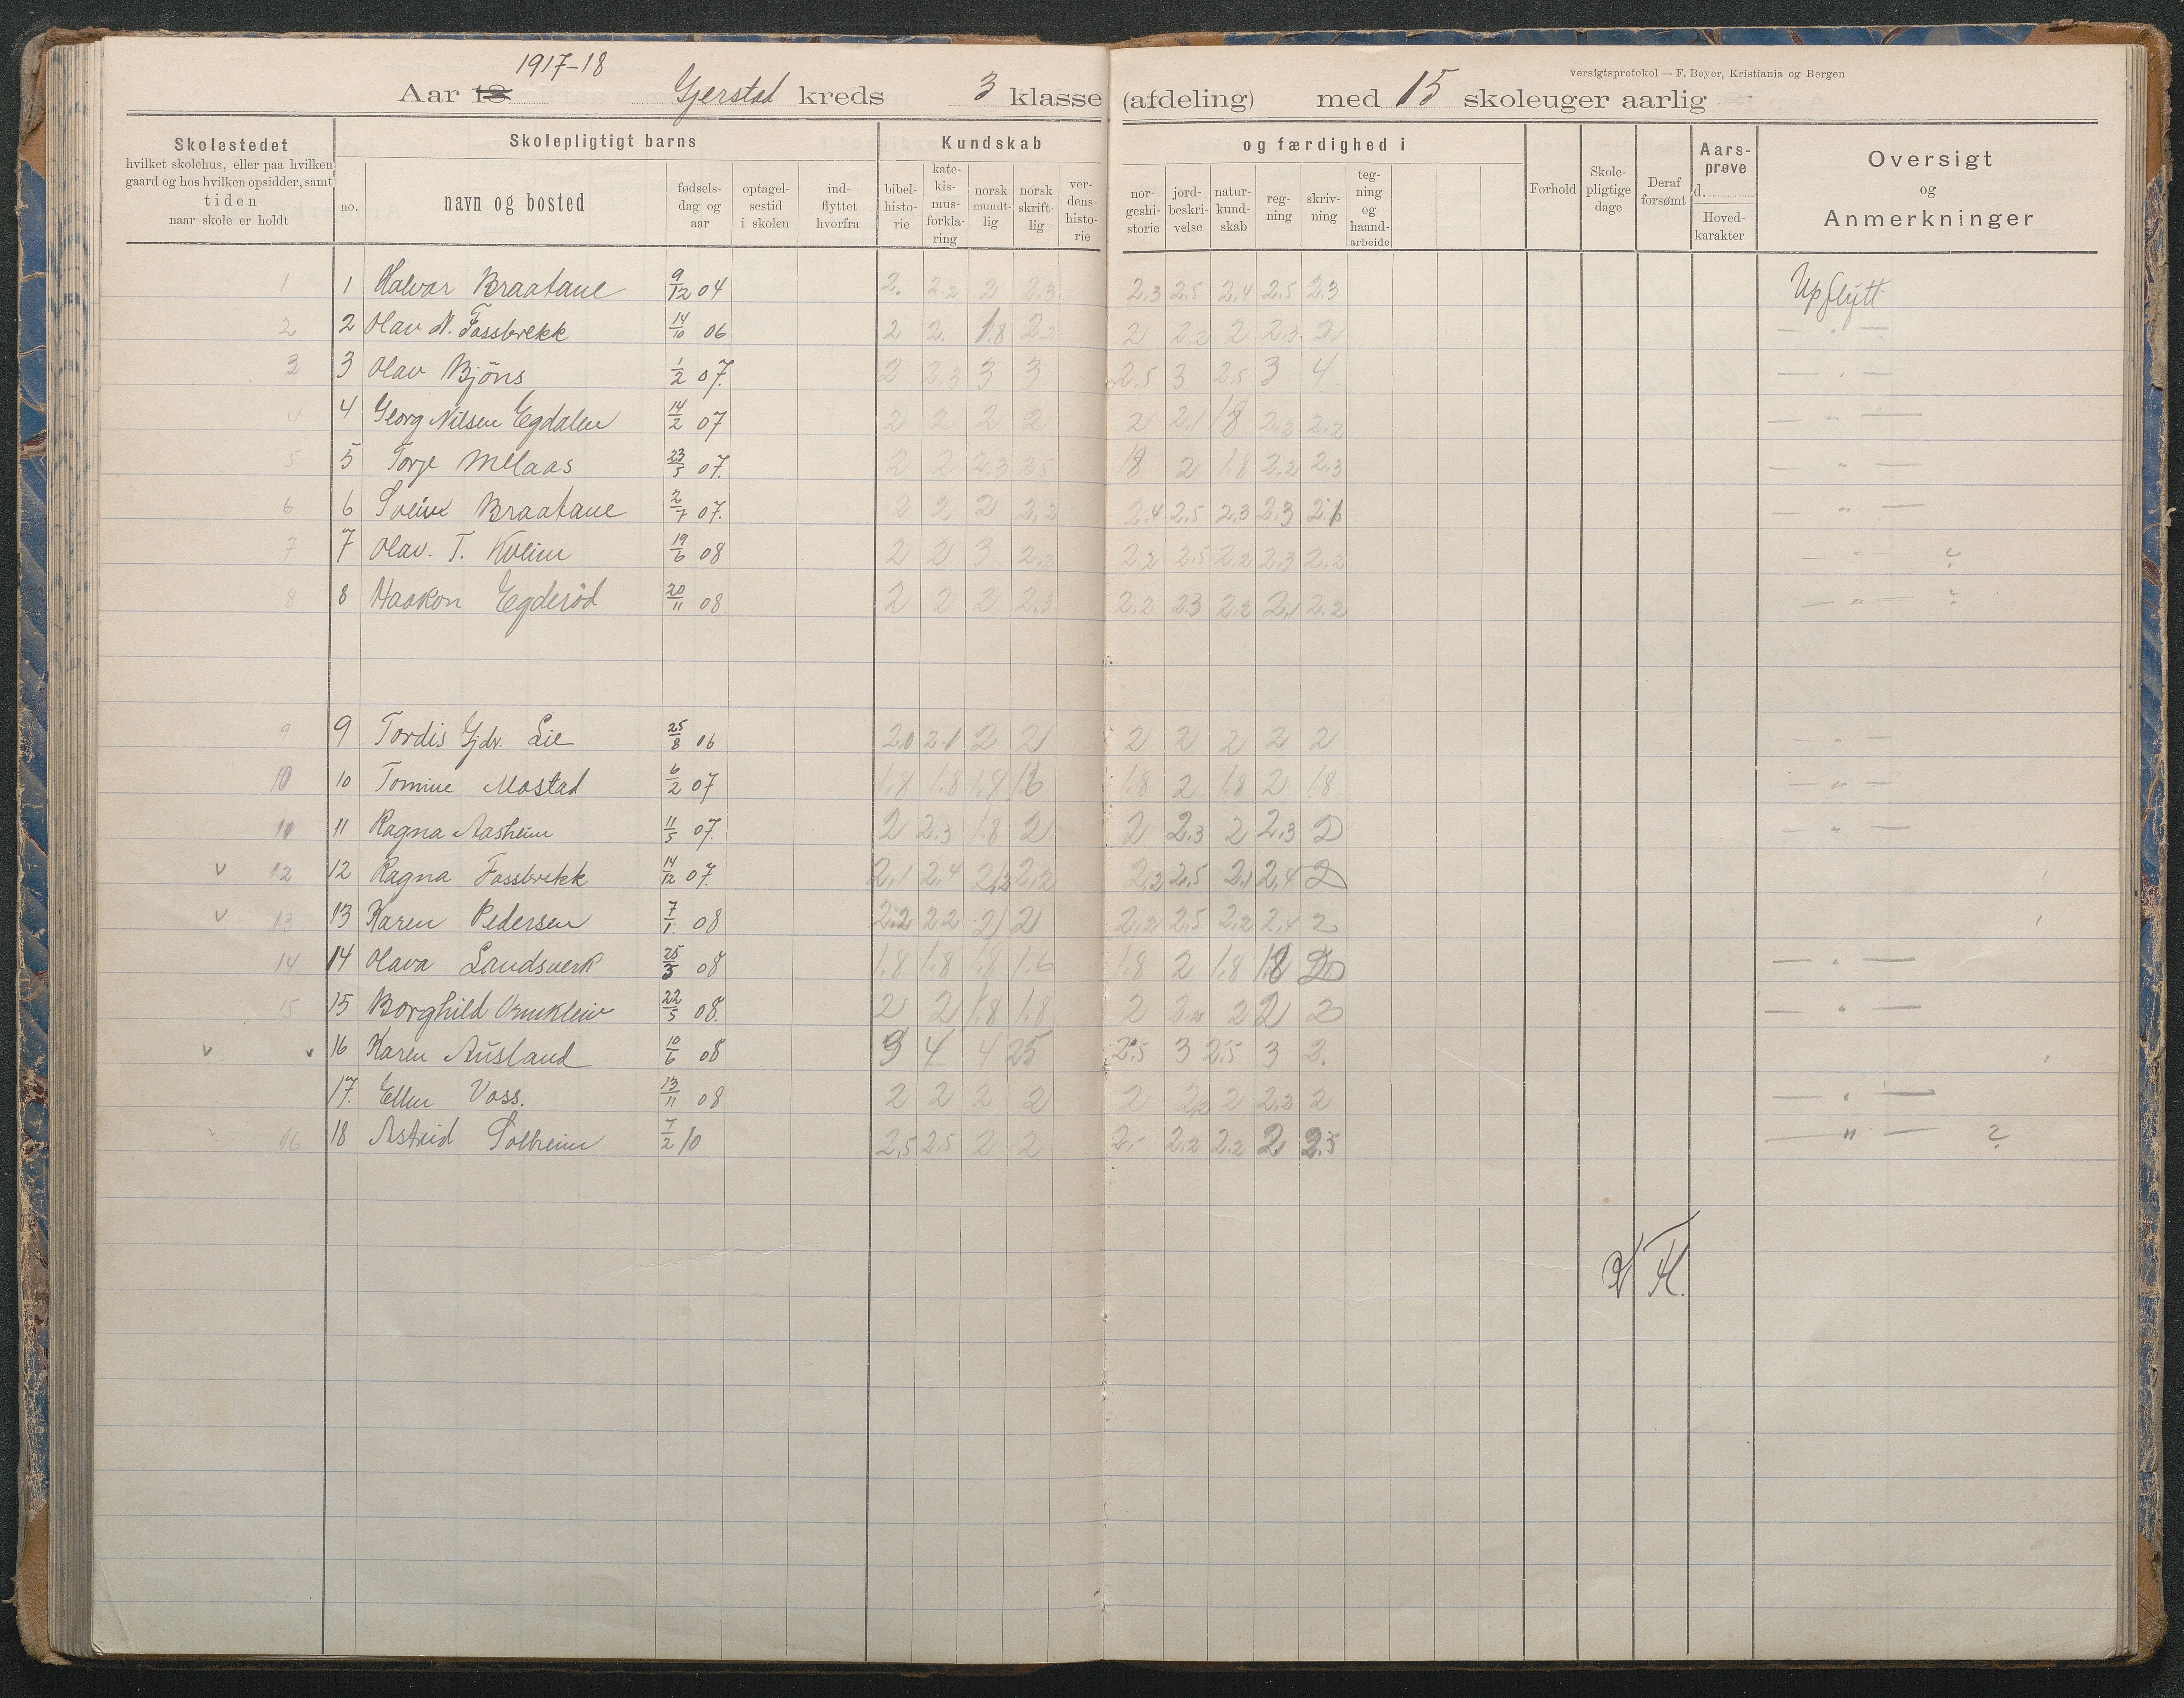 1917-18
versigtsprotokol — F. Beyer, Kristiania og Bergen
Aar 18 Gjerstad kreds 3 klasse (afdeling) med 15 skoleuger aarlig
Skolestedet hvilket skolehus, eller paa hvilken gaard og hos hvilken opsidder, samt tiden naar skole er holdt
Skolepligtigt barns
no. navn og bosted fødsels-dag og aar optagel-sestid i skolen ind-flyttet hvorfra
Kundskab og færdighed i
bibel-histo-rie kate-kis-mus-forkla-ring norsk mundt-lig norsk skrift-lig ver-dens-histo-rie nor-geshi-storie jord-beskri-velse natur-kund-skab reg-ning skriv-ning teg-ning og haand-arbeide
Forhold Skole-pligtige dage Deraf forsømt Aars-prøve d. Hoved-karakter
Oversigt og Anmerkninger
1 1 Halvor Braatane 9/12 04 2. 2.2 2 2.3 2.3 2.5 2.4 2.5 2.3 Upflytt
2 2 Olav N. Fossbrekk 14/10 06 2 2. 1.8 2.2 2 2.2 2 2.3 2 — " —
3 3 Olav Bjöns 1/2 07. 2 2.3 3 3 2.5 3 2.5 3 4 — " —
4 4 Georg Nilsen Egdalen 14/2 07 2 2 2 2 2 2.1 18 2.2 2.2 — " —
5 5 Torje Melaas 23/5 07. 2 2 2.3 25 18 2 1.8 2.2 2.3 — " —
6 6 Svein Braatane 2/7 07. 2 2 2 2.2 2.4 2.5 2.3 2.3 — " —
7 7 Olav. T. Kveim 19/6 08 2 2 3 2.2 2.2 2.5 2.2 2.3 2.2 — " — ?
8 8 Haakon Egderöd 20/11 08 2 2 2 2.3 2.2 23 2.2 2.1 2.2 — " — ?
9 9 Tordis Gjdr. Lie 25/8 06 2.0 2.1 2 2 2 2 2 2 2 — " —
10 10 Tomine Mostad 6/2 07 1.8 1.8 1.8 1.6 1.8 2 1.8 2 1.8 — " —
11 Ragna Aasheim 11/5 07. 2 2.3 1.8 2 2 2.3 2 2.3 2 — " —
v 12 12 Ragna Fossbrekk 14/12 07. 2.1 2.4 2.2 2.2 2.2 2.5 2.1 2.4 2
v 13 13 Karen Pedersen 7/1 08 2.2 2.2 2 2 2.2 2.5 2.2 2.4 2
14 14 Olava Landsverk 08 1.8 1.8 1.8 1.6 1.8 2 1.8 1.8 — " —
15 15 Borghild 22/5 08. 2 2 1.8 1.8 2 2.2 2 2 2 — " —
v v 16 Karen Ausland 10/6 08 3 4 4 25 2.5 3 2.5 3 2.
17. Ellen Voss. 13/11 08 2 2 2 2 2 2.2 2 2.2 2 — " —
16 18 Astrid Solheim 7/2 10 2.5 2.5 2 2 2.2 2.2 2 2.5 — " — ?